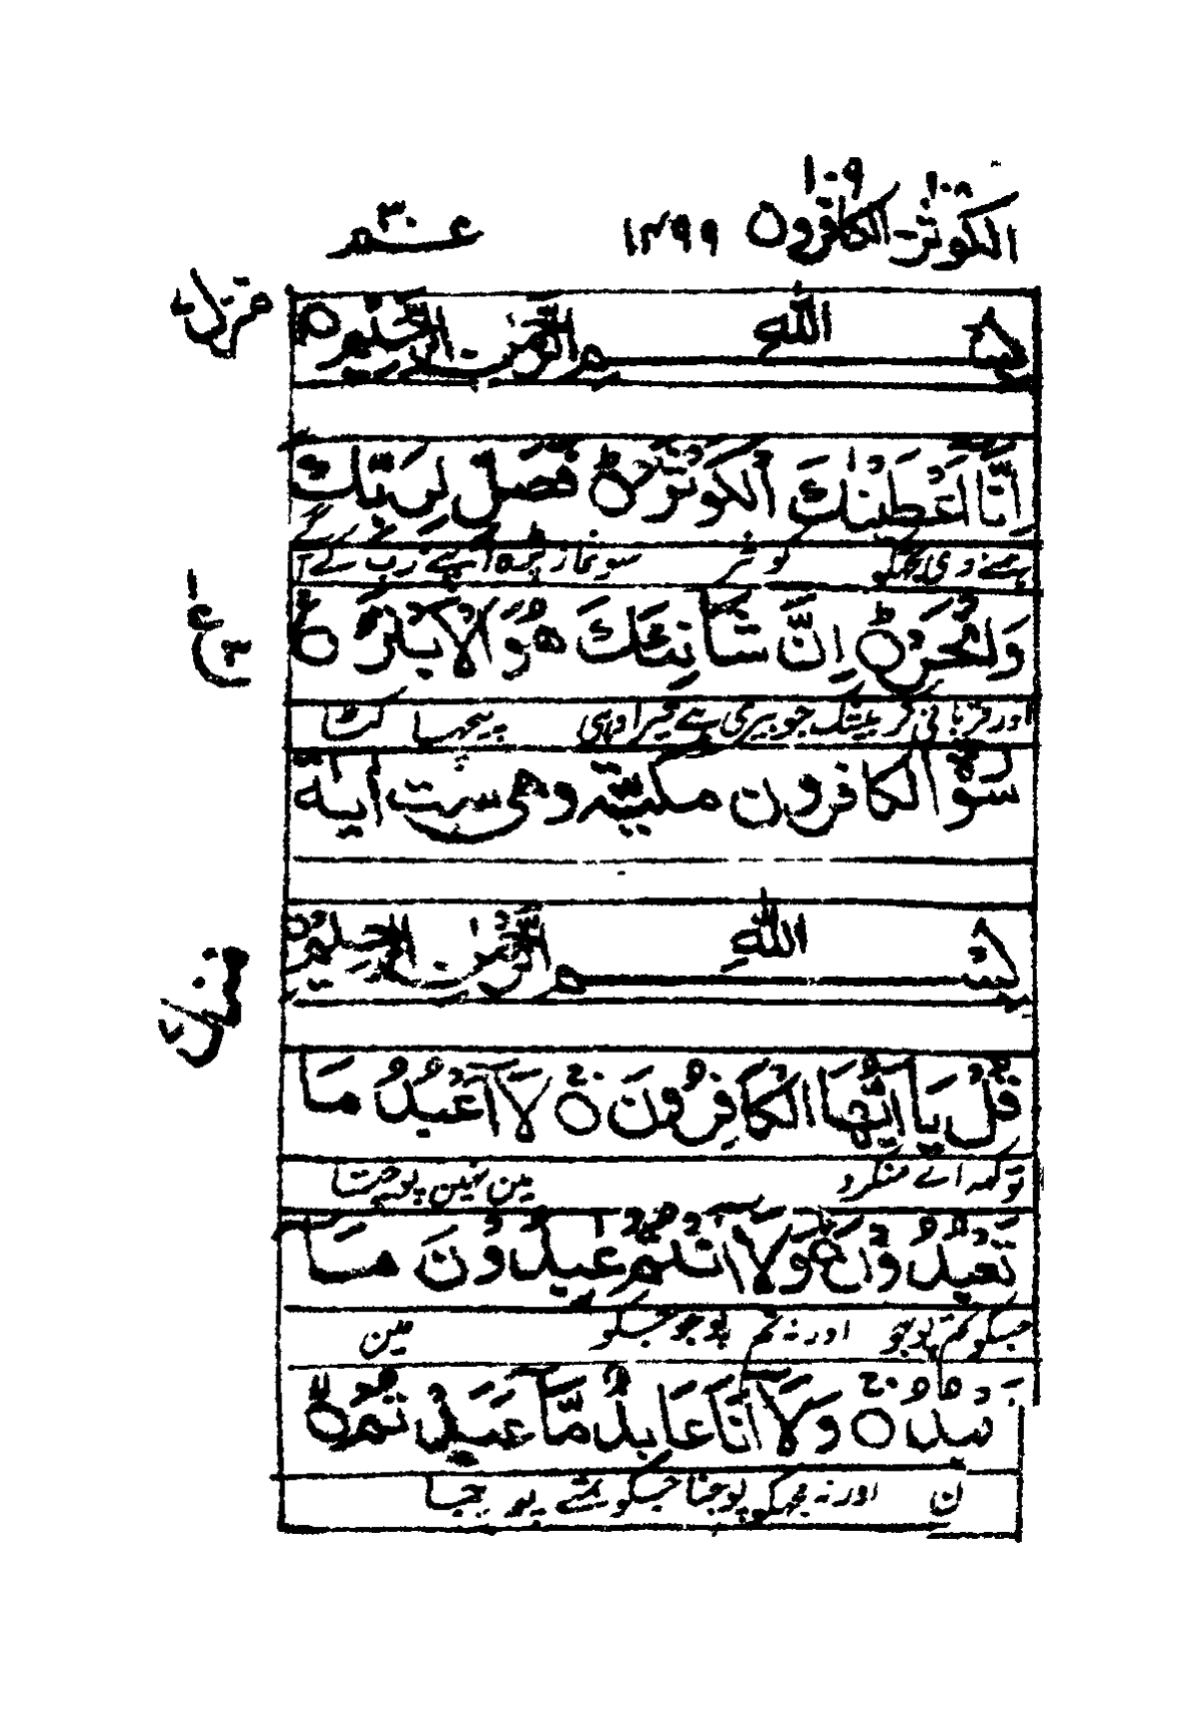 ۱۰۸ ۱۰۹
الکوثر - الکافرون ۱۳۹۹ عم ۳۰
بسم الله الرحمن الرحیم ○
اِنَّا اَعْطَیْنٰكَ الْكَوْثَرَ ○ فَصَلِّ لِرَبِّكَ
ہمنے دی تجھکو کوثر سو نماز پڑہ اپنے رب کے آ
وَانْحَرْ ○ اِنَّ شَانِئَكَ هُوَ الْاَبْتَرُ ○
اور قربانی کر بیشک جو بیری ہے تیرا وہی پیچھا کٹا
سورة الکافرون مکیة وهی ست اٰیة
بسم الله الرحمن الرحیم
قُلْ یَا اَیُّهَا الْكَافِرُوْنَ ○ لَا اَعْبُدُ مَا
تو کہہ اے منکرو مین نہین پوجتا
تَعْبُدُوْنَ ○ وَلَا اَنْتُمْ عٰبِدُوْنَ مَا
جسکو تم پوجو اور نہ تم پوجو جسکو مین
بُدُ ○ وَلَا اَنَا عَابِدٌ مَّا عَبَدْتُّمْ ○
ن اور نہ مجھکو پوجنا جسکو تمنے پوجا